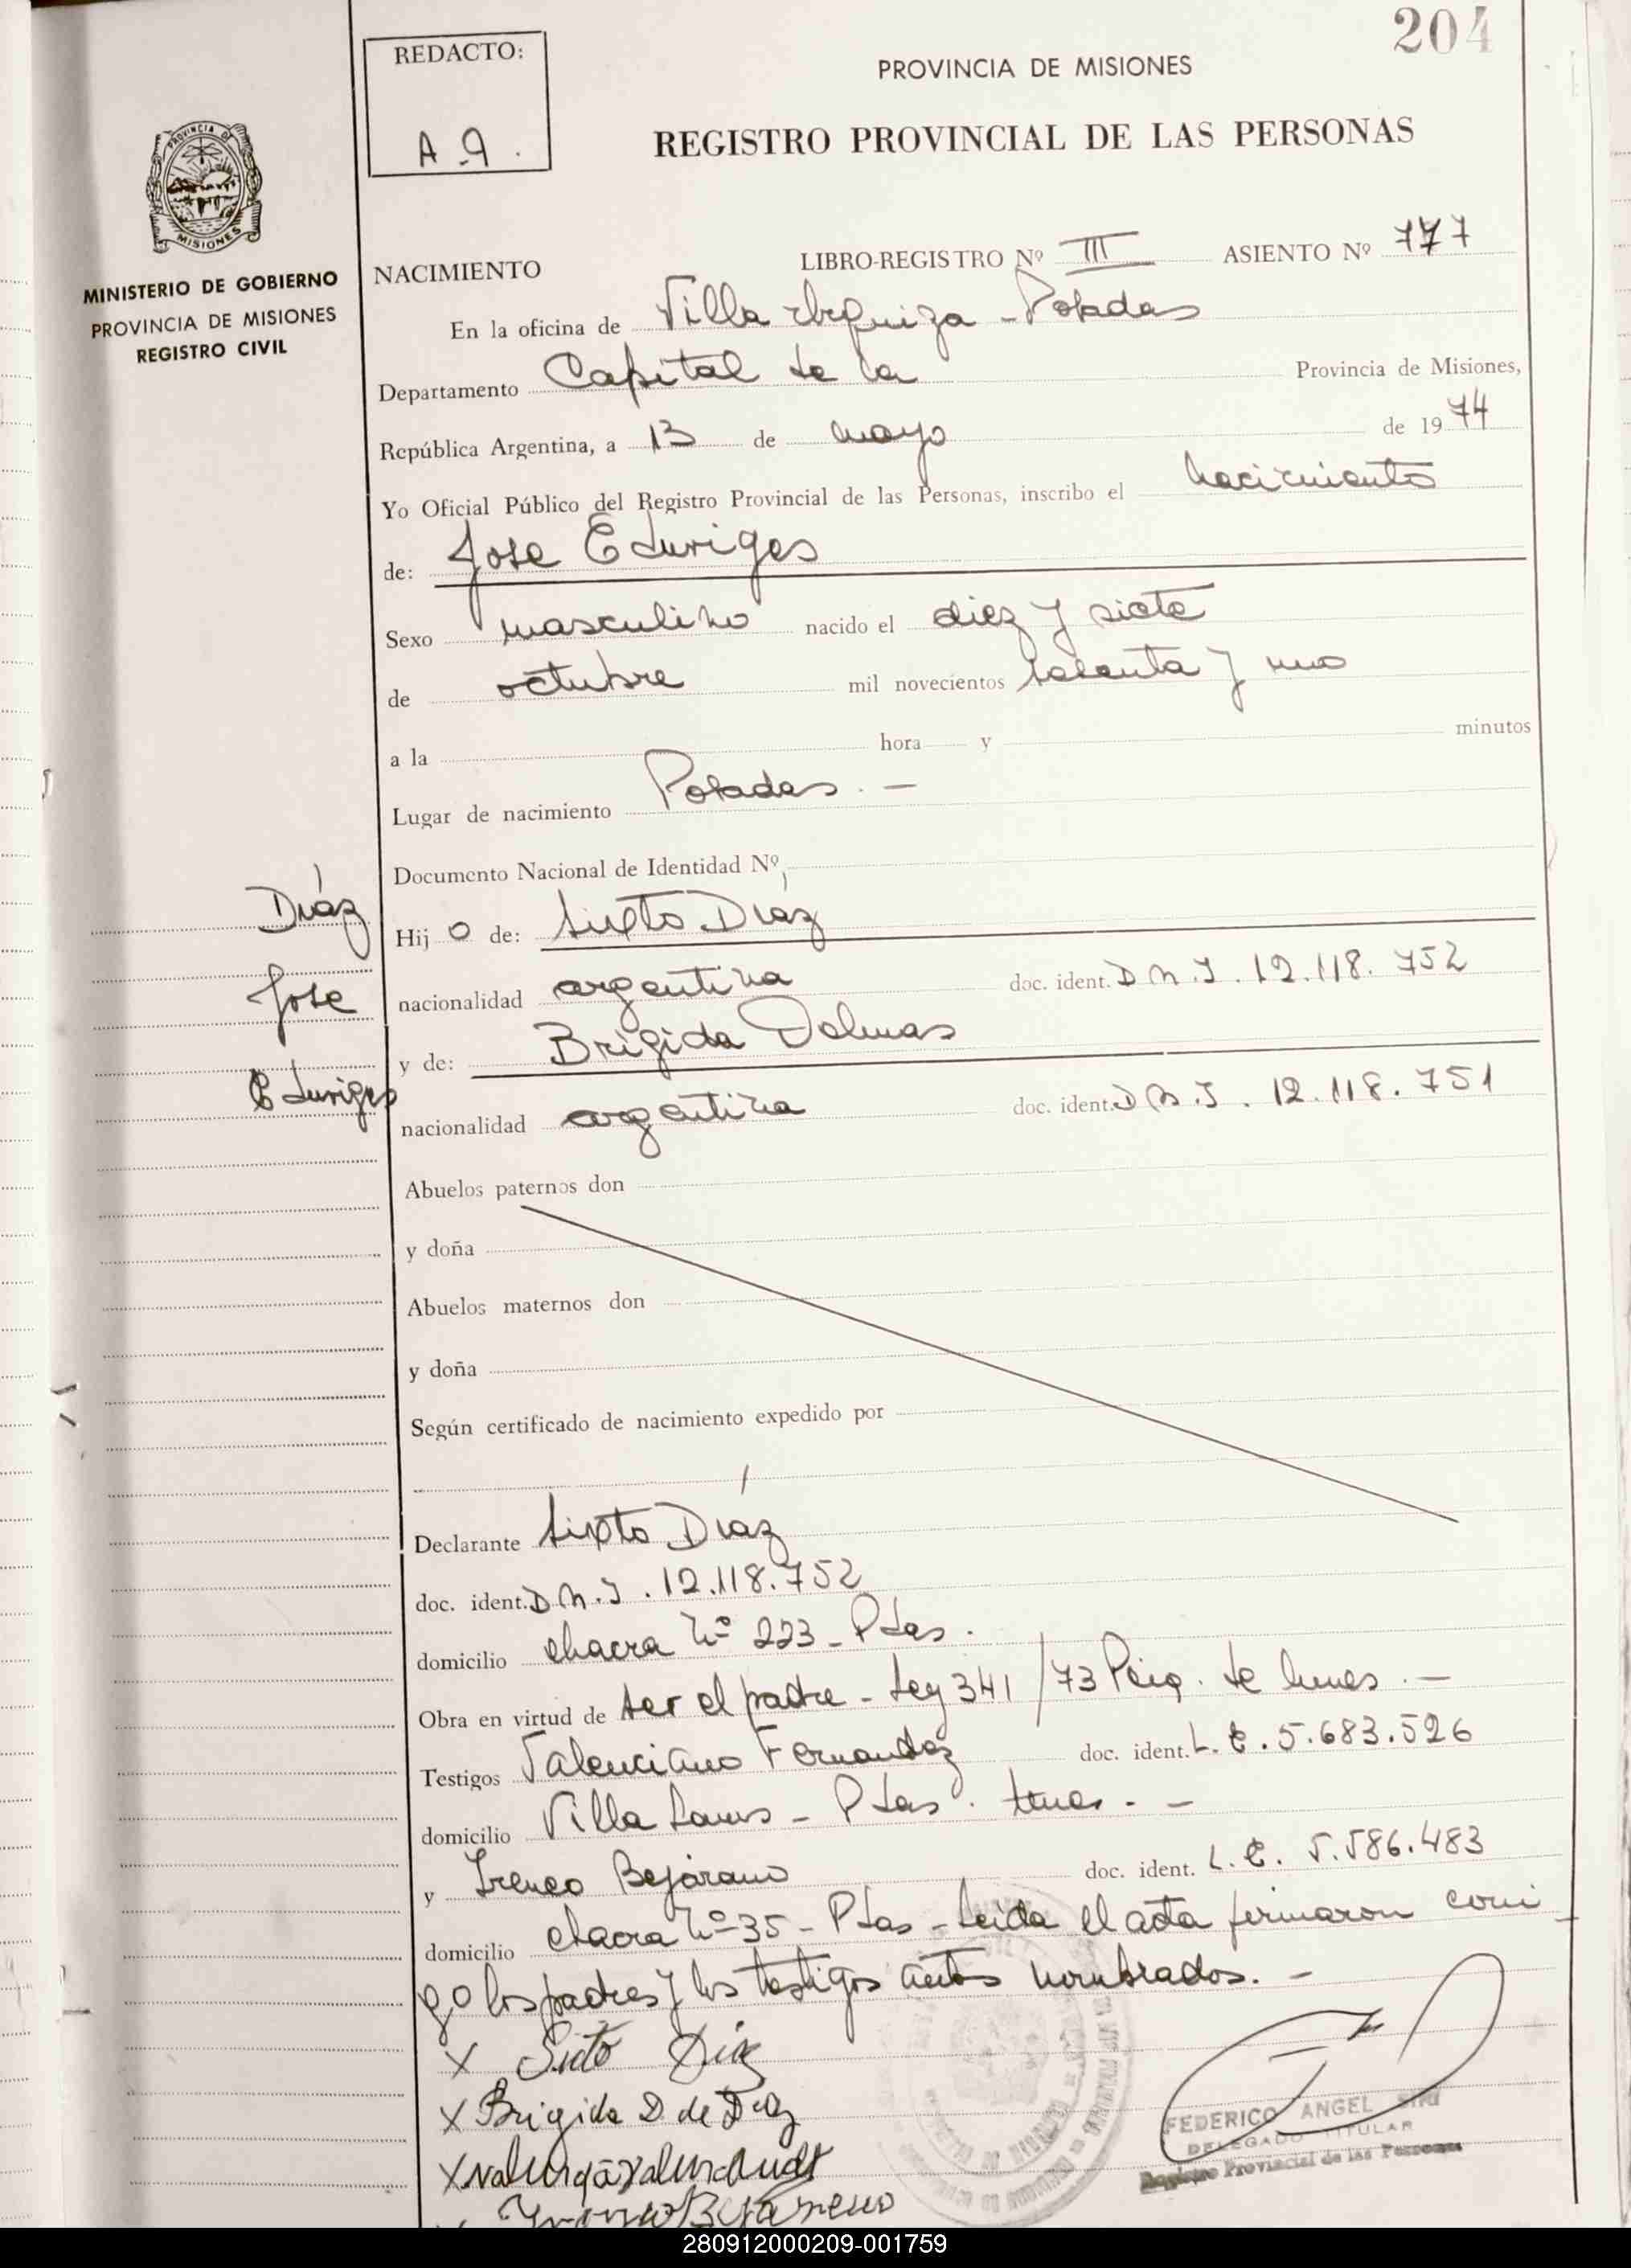 204
REDACTO:
A-9.
PROVINCIA DE MISIONES
REGISTRO PROVINCIAL DE LAS PERSONAS
PROVINCIA DE
MISIONES
MINISTERIO DE GOBIERNO
PROVINCIA DE MISIONES
REGISTRO CIVIL
NACIMIENTO LIBRO-REGISTRO Nº III ASIENTO Nº 777
En la oficina de Villa Urquiza - Posadas
Departamento Capital de la Provincia de Misiones,
República Argentina, a 13 de mayo de 1974
Yo Oficial Público del Registro Provincial de las Personas, inscribo el nacimiento
de: Jose Eduviges
Sexo masculino nacido el diez y siete
de octubre mil novecientos sesenta y uno
a la hora y minutos
Lugar de nacimiento Posadas. -
Documento Nacional de Identidad Nº
Díaz
Hijo de: Sixto Díaz
Jose
nacionalidad argentina doc. ident. D N.I. 12.118.752
y de: Brigida Dalmas
Eduviges
nacionalidad argentina doc. ident. D N.I. 12.118.751
Abuelos paternos don
y doña
Abuelos maternos don
y doña
Según certificado de nacimiento expedido por
Declarante Sixto Díaz
doc. ident. D N.I. 12.118.752
domicilio chacra Nº 223 - Pdas.
Obra en virtud de ser el padre - Ley 341/73
Testigos Valenciano Fernandez doc. ident. L.E. 5.683.526
domicilio Villa - Pdas.
y Ireneo Bejarano doc. ident. L.E. 5.586.483
domicilio chacra Nº 35 - Pdas - Leida el acta firmaron conmi
go los padres y los testigos antes nombrados. -
X Sixto Díaz
X Brigida D. de Diaz
X
FEDERICO ANGEL
DELEGADO TITULAR
Registro Provincial de las Personas
280912000209-001759